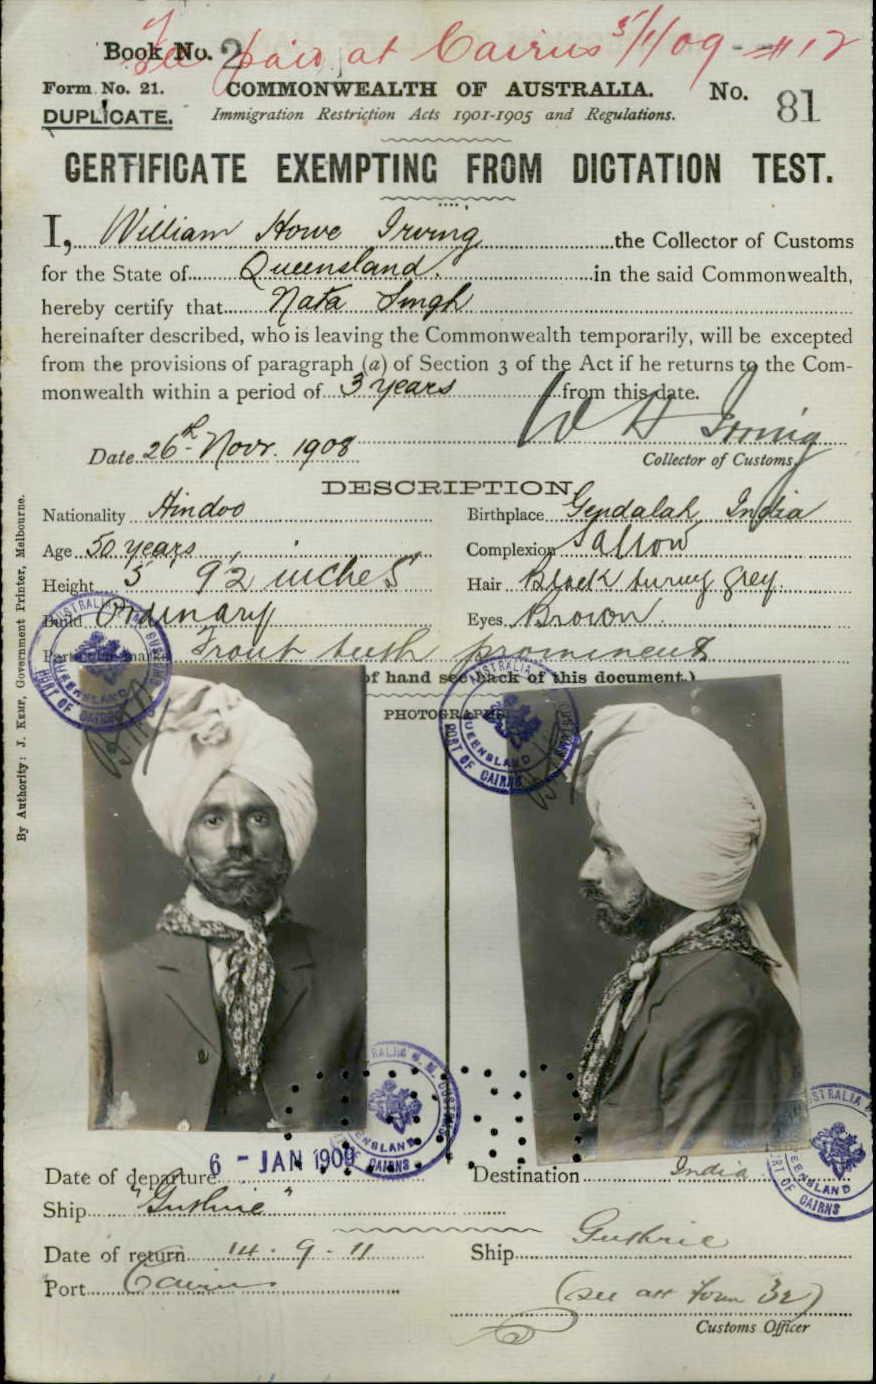 Fee paid at Cairns 5/1/09 - #12
Book No. 2
Form No. 21. COMMONWEALTH OF AUSTRALIA. No. 81
DUPLICATE. Immigration Restriction Acts 1901-1905 and Regulations.
CERTIFICATE EXEMPTING FROM DICTATION TEST.
I, William Howe Irving the Collector of Customs
for the State of Queensland. in the said Commonwealth,
hereby certify that Nata Singh
hereinafter described, who is leaving the Commonwealth temporarily, will be excepted
from the provisions of paragraph (a) of Section 3 of the Act if he returns to the Com-
monwealth within a period of 3 years from this date.
W H Irving
Date 26th Novr. 1908
Collector of Customs.
DESCRIPTION.
Nationality Hindoo Birthplace Gendalah, India
Age 50 years Complexion Sallow
Height 5' 9½ inches Hair Black turning grey.
Build Ordinary Eyes Brown.
Particular marks Front teeth prominent
of hand see back of this document.)
PHOTOGRAPHS
By Authority: J. Kemp, Government Printer, Melbourne.
AUSTRALIA H.M. CUSTOMS QUEENSLAND PORT OF CAIRNS
AUSTRALIA QUEENSLAND PORT OF CAIRNS
TRALIA H. M. CUSTOMS ENSLAND CAIRNS
STRALIA EENSLAND RT OF CAIRNS
Date of departure 6 - JAN 1909 Destination India
Ship "Guthrie"
Date of return 14 - 9 - 11 Ship Guthrie
Port Cairns (see att form 32)
Customs Officer